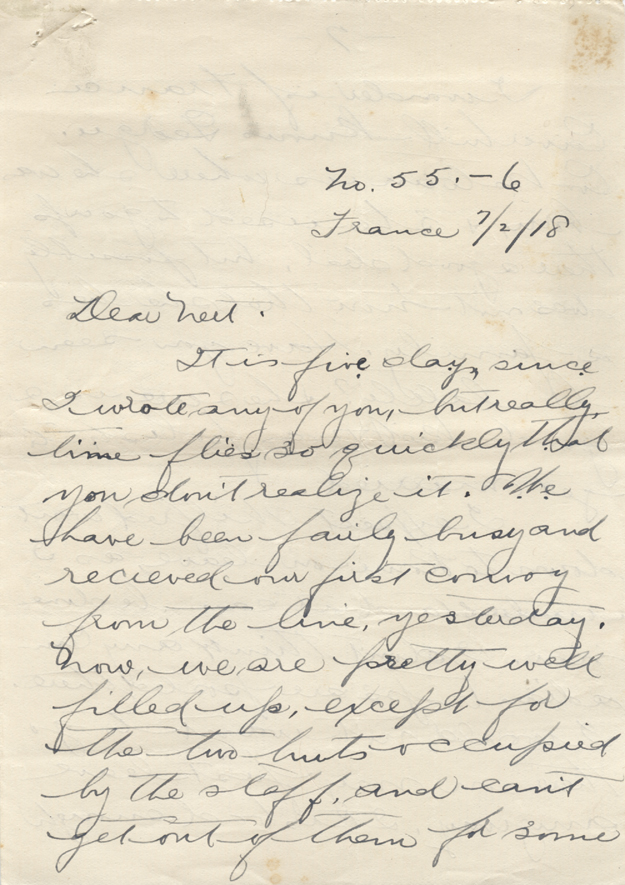 No. 55.-6
France 7/2/18
Dear Nert.
It is five days, since
I wrote any of you, but really,
time flies so quickly that
you don't realize it. We
have been fairly busy and
recieved our first convoy
from the line, yesterday.
Now, we are pretty well
filled up, except for
the two huts occupied
by the staff, and can't
get out of them for some